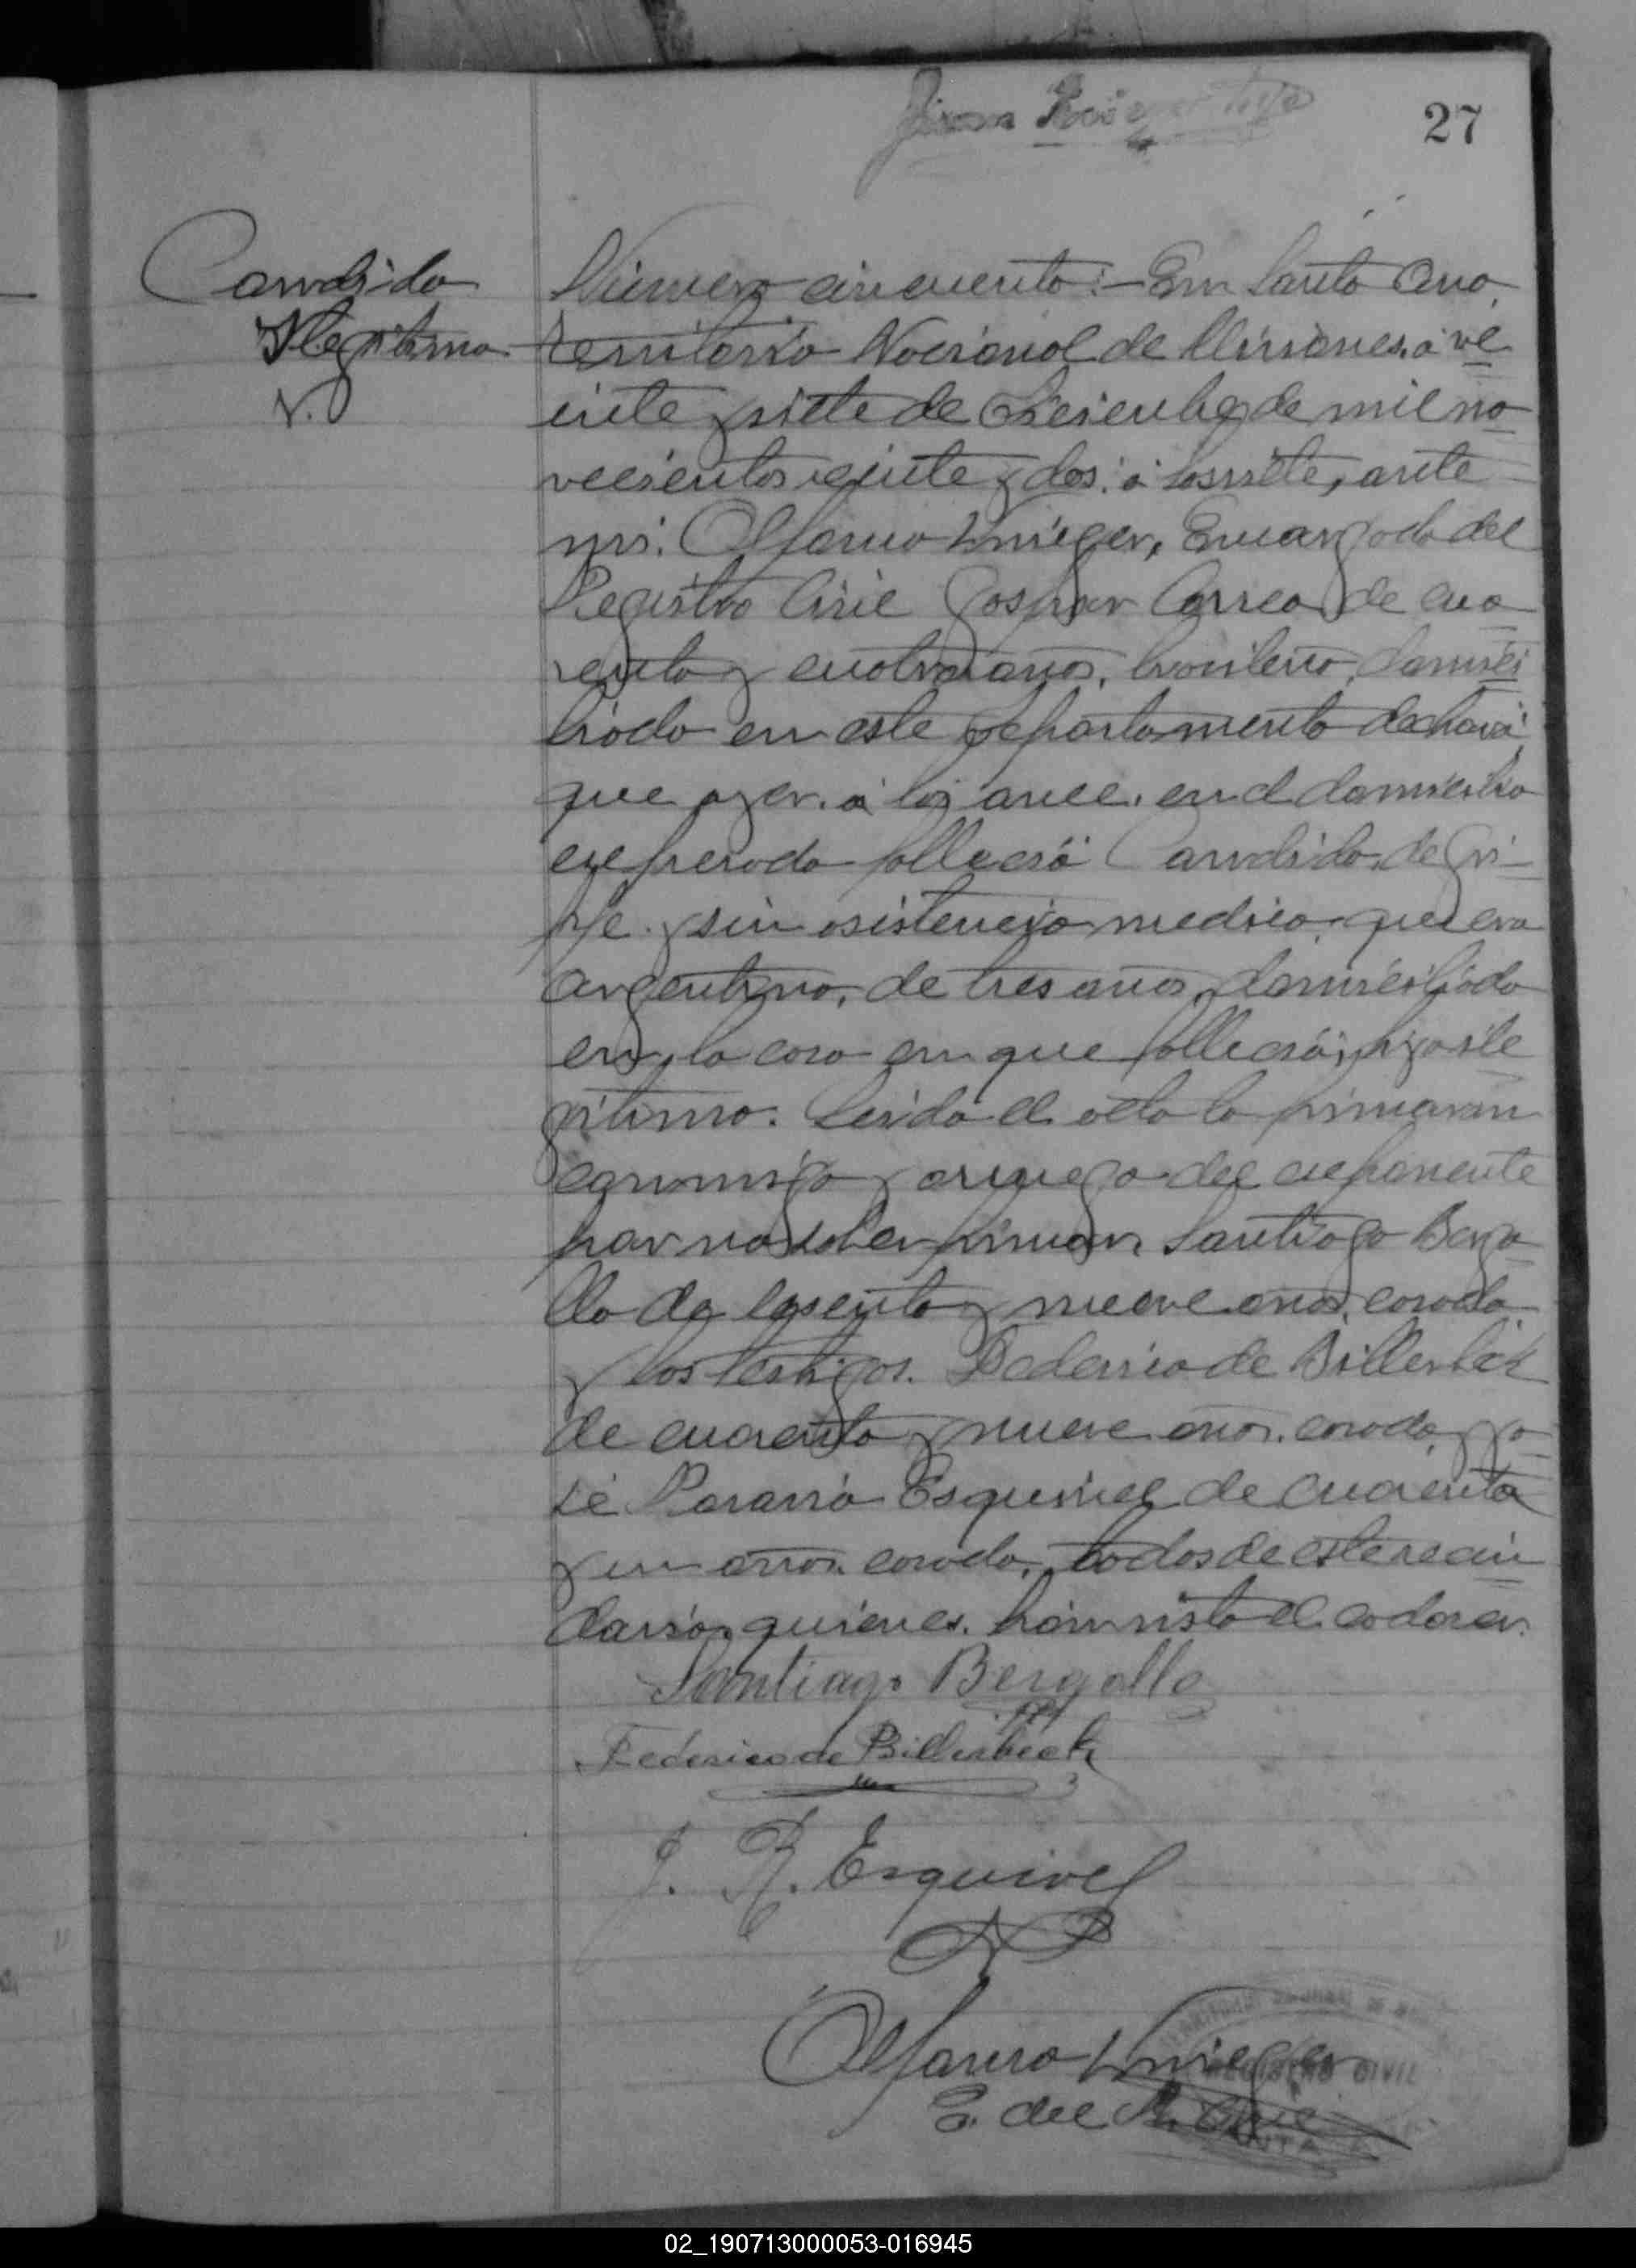 27
Candido
Ilegitimo
V.
Numero cincuenta:- En Santa Ana,
territorio Nacional de Misiones, a ve
inte y siete de Diciembre de mil no
vecientos veinte y dos, á las siete, ante
mi, Alfonso Krieger, Encargado del
Registro Civil Gaspar Correa, de cua
renta y cuatro años, brasilero, domici
liado en este departamento declará,
que ayer, á las once, en el domicilio
expresado falleció Candido, de gri-
pe y sin asistencia medica, que era
argentino, de tres años, domiciliado
en la casa en que falleció; hijo ile
gitimo. Leida el acta la firmaron
conmigo y a ruego del exponente
por no saber firmar, Santiago Berga
llo de sesenta y nueve años, casado
y los testigos. Federico de Billerbek
de cuarenta y nueve años, casado, y Jo
sé Rosario Esquivel de cuarenta
y un años, casado, todos de este vecin
dario, quienes, han visto el cadaver.
Santiago Bergallo
Federico de Billerbeck
J. R. Esquivel
Alfonso Krieger
E. del R. Civil
REGISTRO CIVIL
02_190713000053-016945